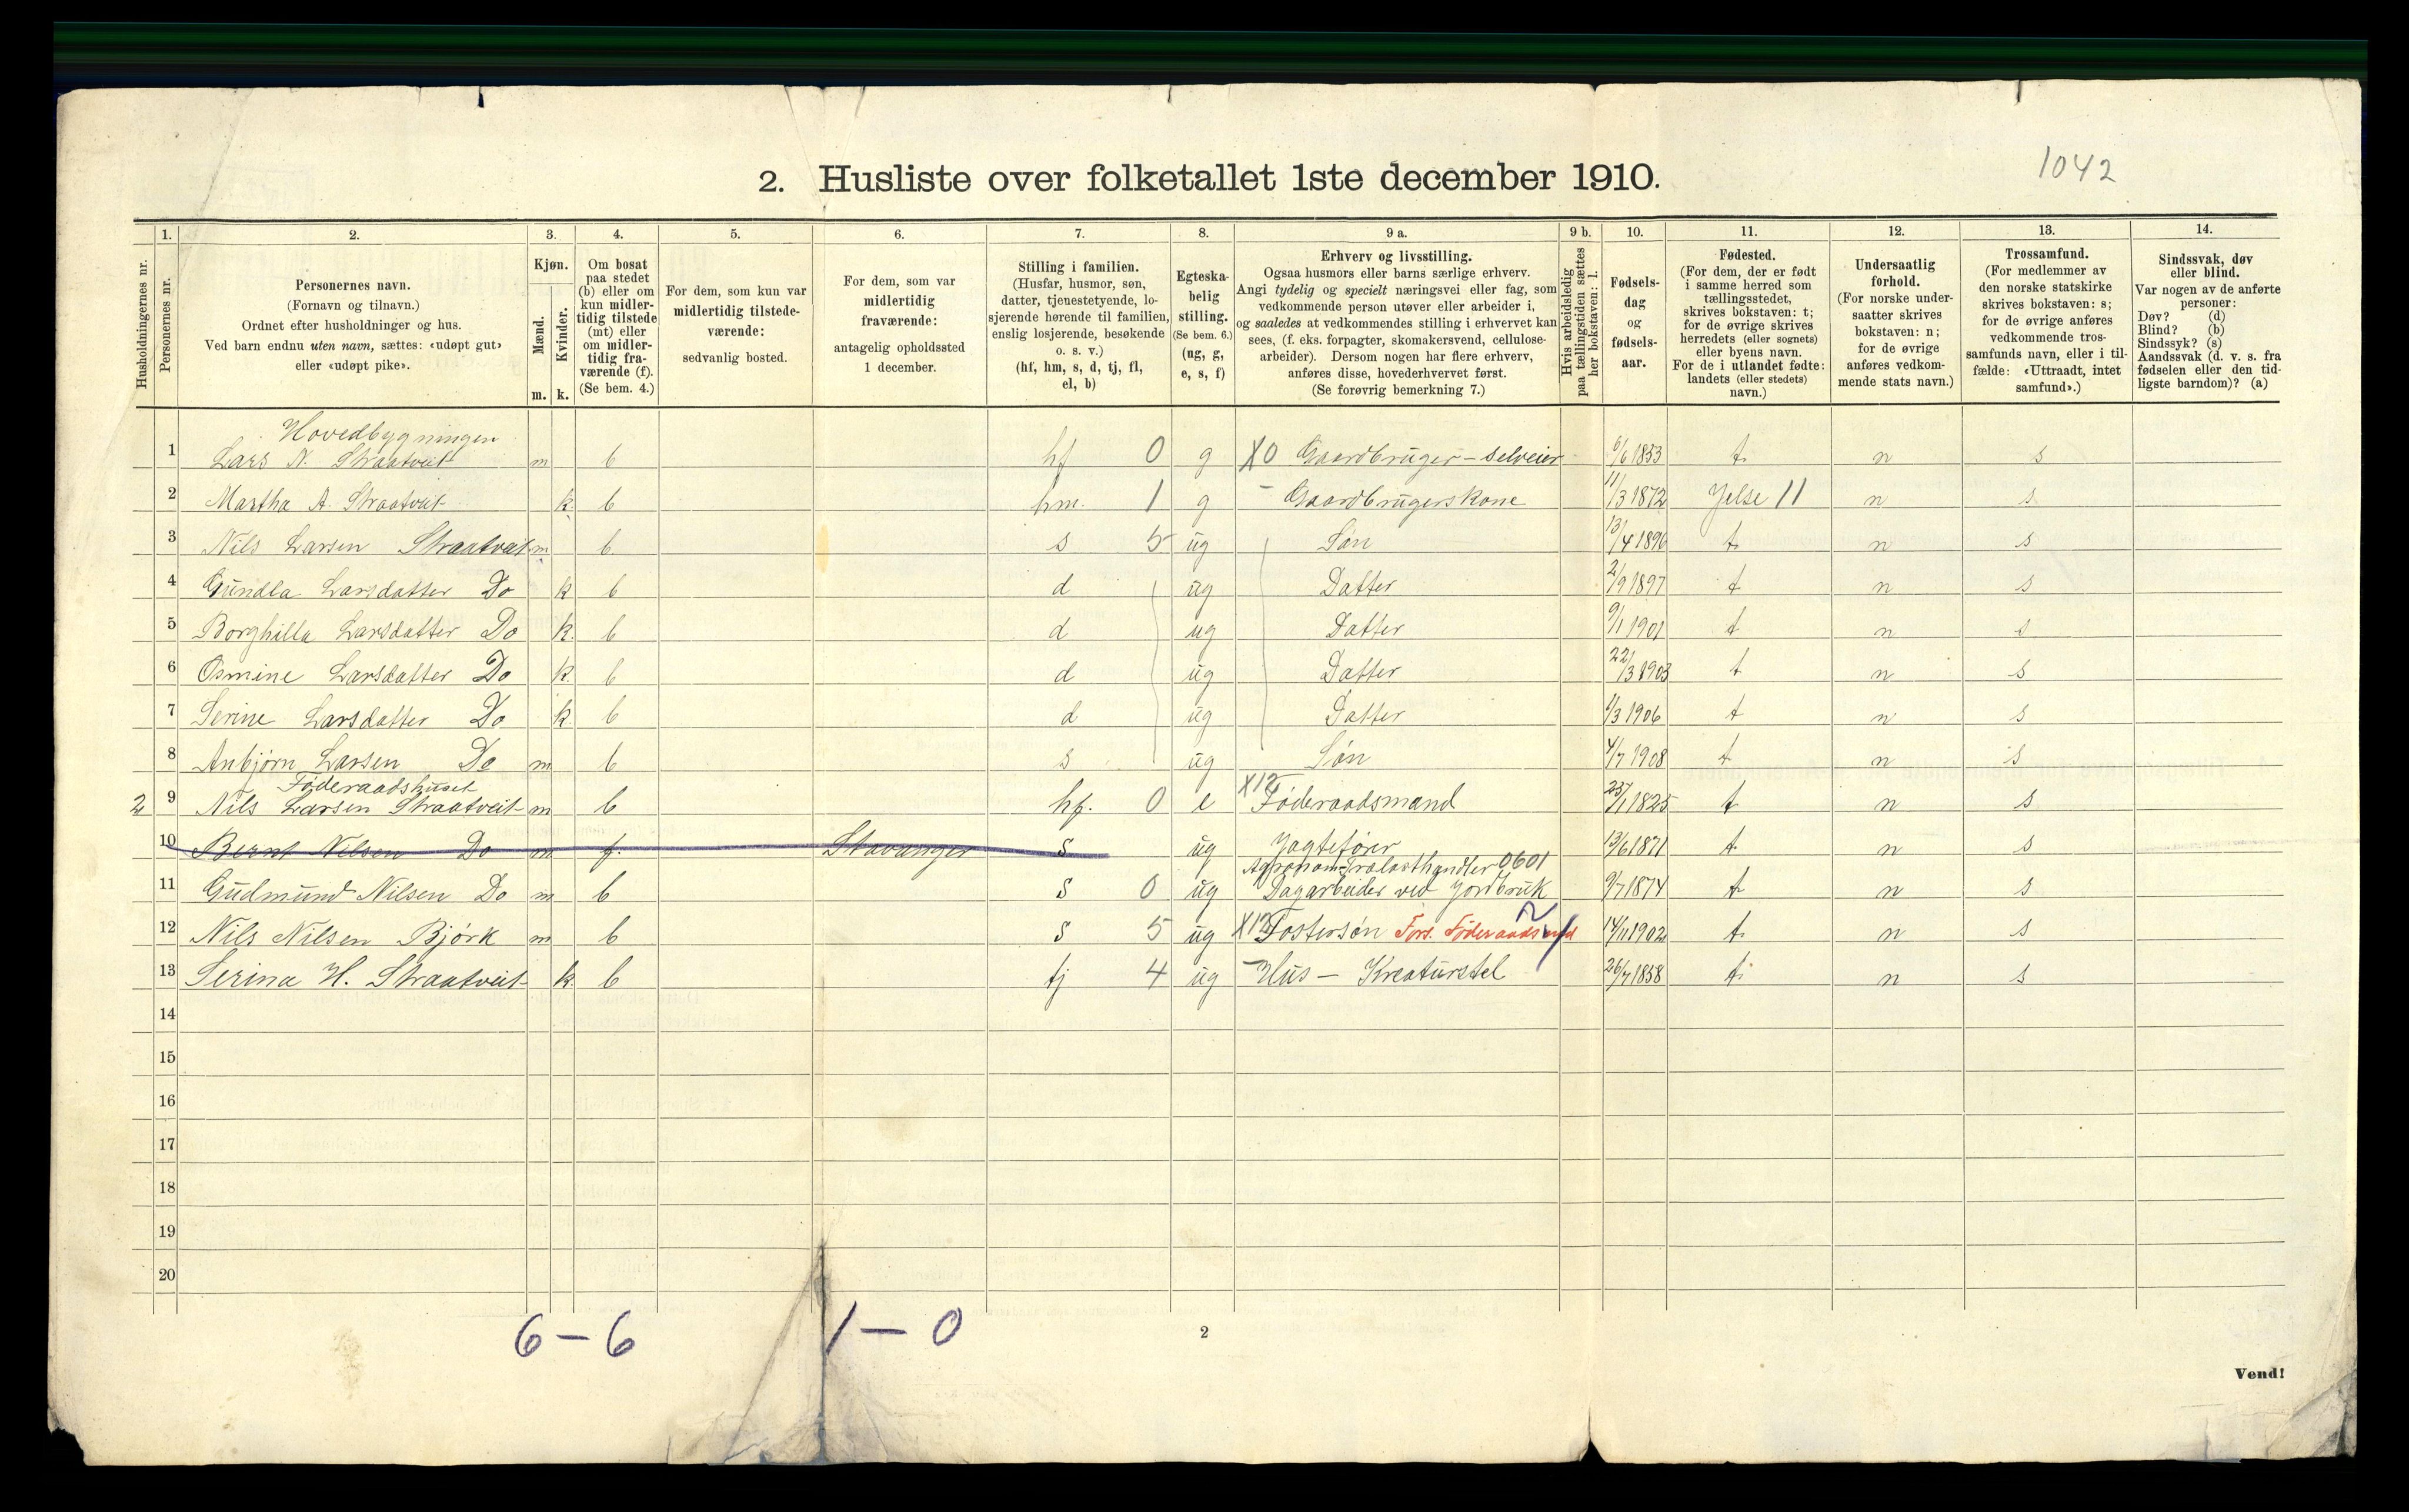 1042
2. Husliste over folketallet 1ste december 1910.
Husholdningernes nr.
1.
Personernes nr.
2.
Personernes navn.
(Fornavn og tilnavn.)
Ordnet efter husholdninger og hus.
Ved barn endnu uten navn, sættes: «udøpt gut»
eller «udøpt pike».
3.
Kjøn.
Mænd.
Kvinder.
m. k.
4.
Om bosat
paa stedet
(b) eller om
kun midler-
tidig tilstede
(mt) eller
om midler-
tidig fra-
værende (f).
(Se bem. 4.)
5.
For dem, som kun var
midlertidig tilstede-
værende:
sedvanlig bosted.
6.
For dem, som var
midlertidig
fraværende:
antagelig opholdssted
1 december.
7.
Stilling i familien.
(Husfar, husmor, søn,
datter, tjenestetyende, lo-
sjerende hørende til familien,
enslig losjerende, besøkende
o. s. v.)
(hf, hm, s, d, tj, fl,
el, b)
8.
Egteska-
belig
stilling.
(Se bem. 6.)
(ug, g,
e, s, f)
9 a.
Erhverv og livsstilling.
Ogsaa husmors eller barns særlige erhverv.
Angi tydelig og specielt næringsvei eller fag, som
vedkommende person utøver eller arbeider i,
og saaledes at vedkommendes stilling i erhvervet kan
sees, (f. eks. forpagter, skomakersvend, cellulose-
arbeider). Dersom nogen har flere erhverv,
anføres disse, hovederhvervet først.
(Se forøvrig bemerkning 7.)
9 b.
Hvis arbeidsledig
paa tællingstiden sættes
her bokstaven: l.
10.
Fødsels-
dag
og
fødsels-
aar.
11.
Fødested.
(For dem, der er født
i samme herred som
tællingsstedet,
skrives bokstaven: t;
for de øvrige skrives
herredets (eller sognets)
eller byens navn.
For de i utlandet fødte:
landets (eller stedets)
navn.)
12.
Undersaatlig
forhold.
(For norske under-
saatter skrives
bokstaven: n;
for de øvrige
anføres vedkom-
mende stats navn.)
13.
Trossamfund.
(For medlemmer av
den norske statskirke
skrives bokstaven: s;
for de øvrige anføres
vedkommende tros-
samfunds navn, eller i til-
fælde: «Uttraadt, intet
samfund».)
14.
Sindssvak, døv
eller blind.
Var nogen av de anførte
personer:
Døv? (d)
Blind? (b)
Sindssyk? (s)
Aandssvak (d. v. s. fra
fødselen eller den tid-
ligste barndom)? (a)
Hovedbygningen
1 Lars N. Straatveit m b hf 0 g X0 Gaardbruger - selveier 6/6 1853 t n s
2 Martha A. Straatveit k b hm. 1 g - Gaardbrugerskone 11/3 1872 Jelse 11 n s
3 Nils Larsen Straatveit m b s 5 ug Søn 13/4 1896 t n s
4 Gundla Larsdatter Do k b d ug Datter 2/9 1897 t n s
5 Borghilla Larsdatter Do k b d ug Datter 9/1 1901 t n s
6 Osmine Larsdatter Do k b d ug Datter 22/3 1903 t n s
7 Serine Larsdatter Do k b d ug Datter /3 1906 t n s
8 Anbjørn Larsen Do m b s ug Søn 4/7 1908 t n s
Føderaadshuset
2 9 Nils Larsen Straatveit m b hf. 0 e X12 Føderaadsmand 25/1 1825 t n s
10 Bernt Nilsen Do m f. Stavanger s ug Jagtefører 13/6 1871 t n s
Agronom-Trælasthandler 0601
11 Gudmund Nilsen Do m b s 0 ug Dagarbeider ved Jordbruk 9/7 1874 t n s
12 Nils Nilsen Bjørk m b s 5 ug X12 Fostersøn Fors. Føderaadsmd 14/11 1902 t n s
13 Serina H. Straatveit k b tj 4 ug - Hus - Kreaturstel 26/7 1858 t n s
14
15
16
17
18
19
20
6 - 6 1 - 0
2
Vend!